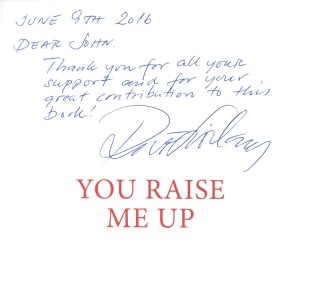 JUNE 9TH 2016
DEAR JOHN.
Thank you for all your
support and for your
great contribution to this
book!
YOU RAISE
ME UP